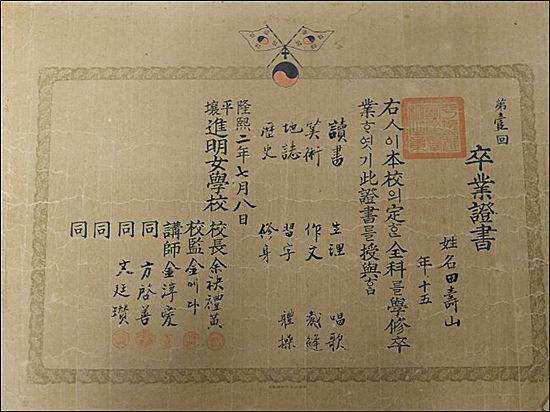 第壹回
卒業證書
姓名田壽山
年十五
右人이本校의定ᄒᆞᆫ全科를學修卒
業ᄒᆞ엿기此證書를授與홈
讀書 生理 唱歌
筭術 作文 裁縫
地誌 習字 體操
歷史 修身
隆熙二年七月八日
平壤進明女學校
校長
校監金에다
講師金淳愛
同方啓善
同廷瓚
同
同